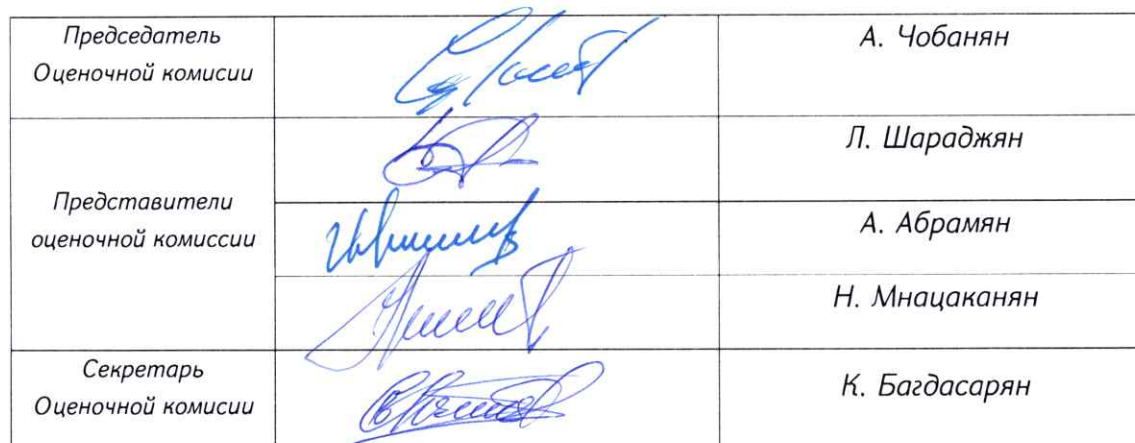 Председатель
Оценочной комисии
А. Чобанян
Л. Шараджян
Представители
оценочной комиссии
А. Абрамян
Н. Мнацаканян
Секретарь
Оценочной комисии
К. Багдасарян